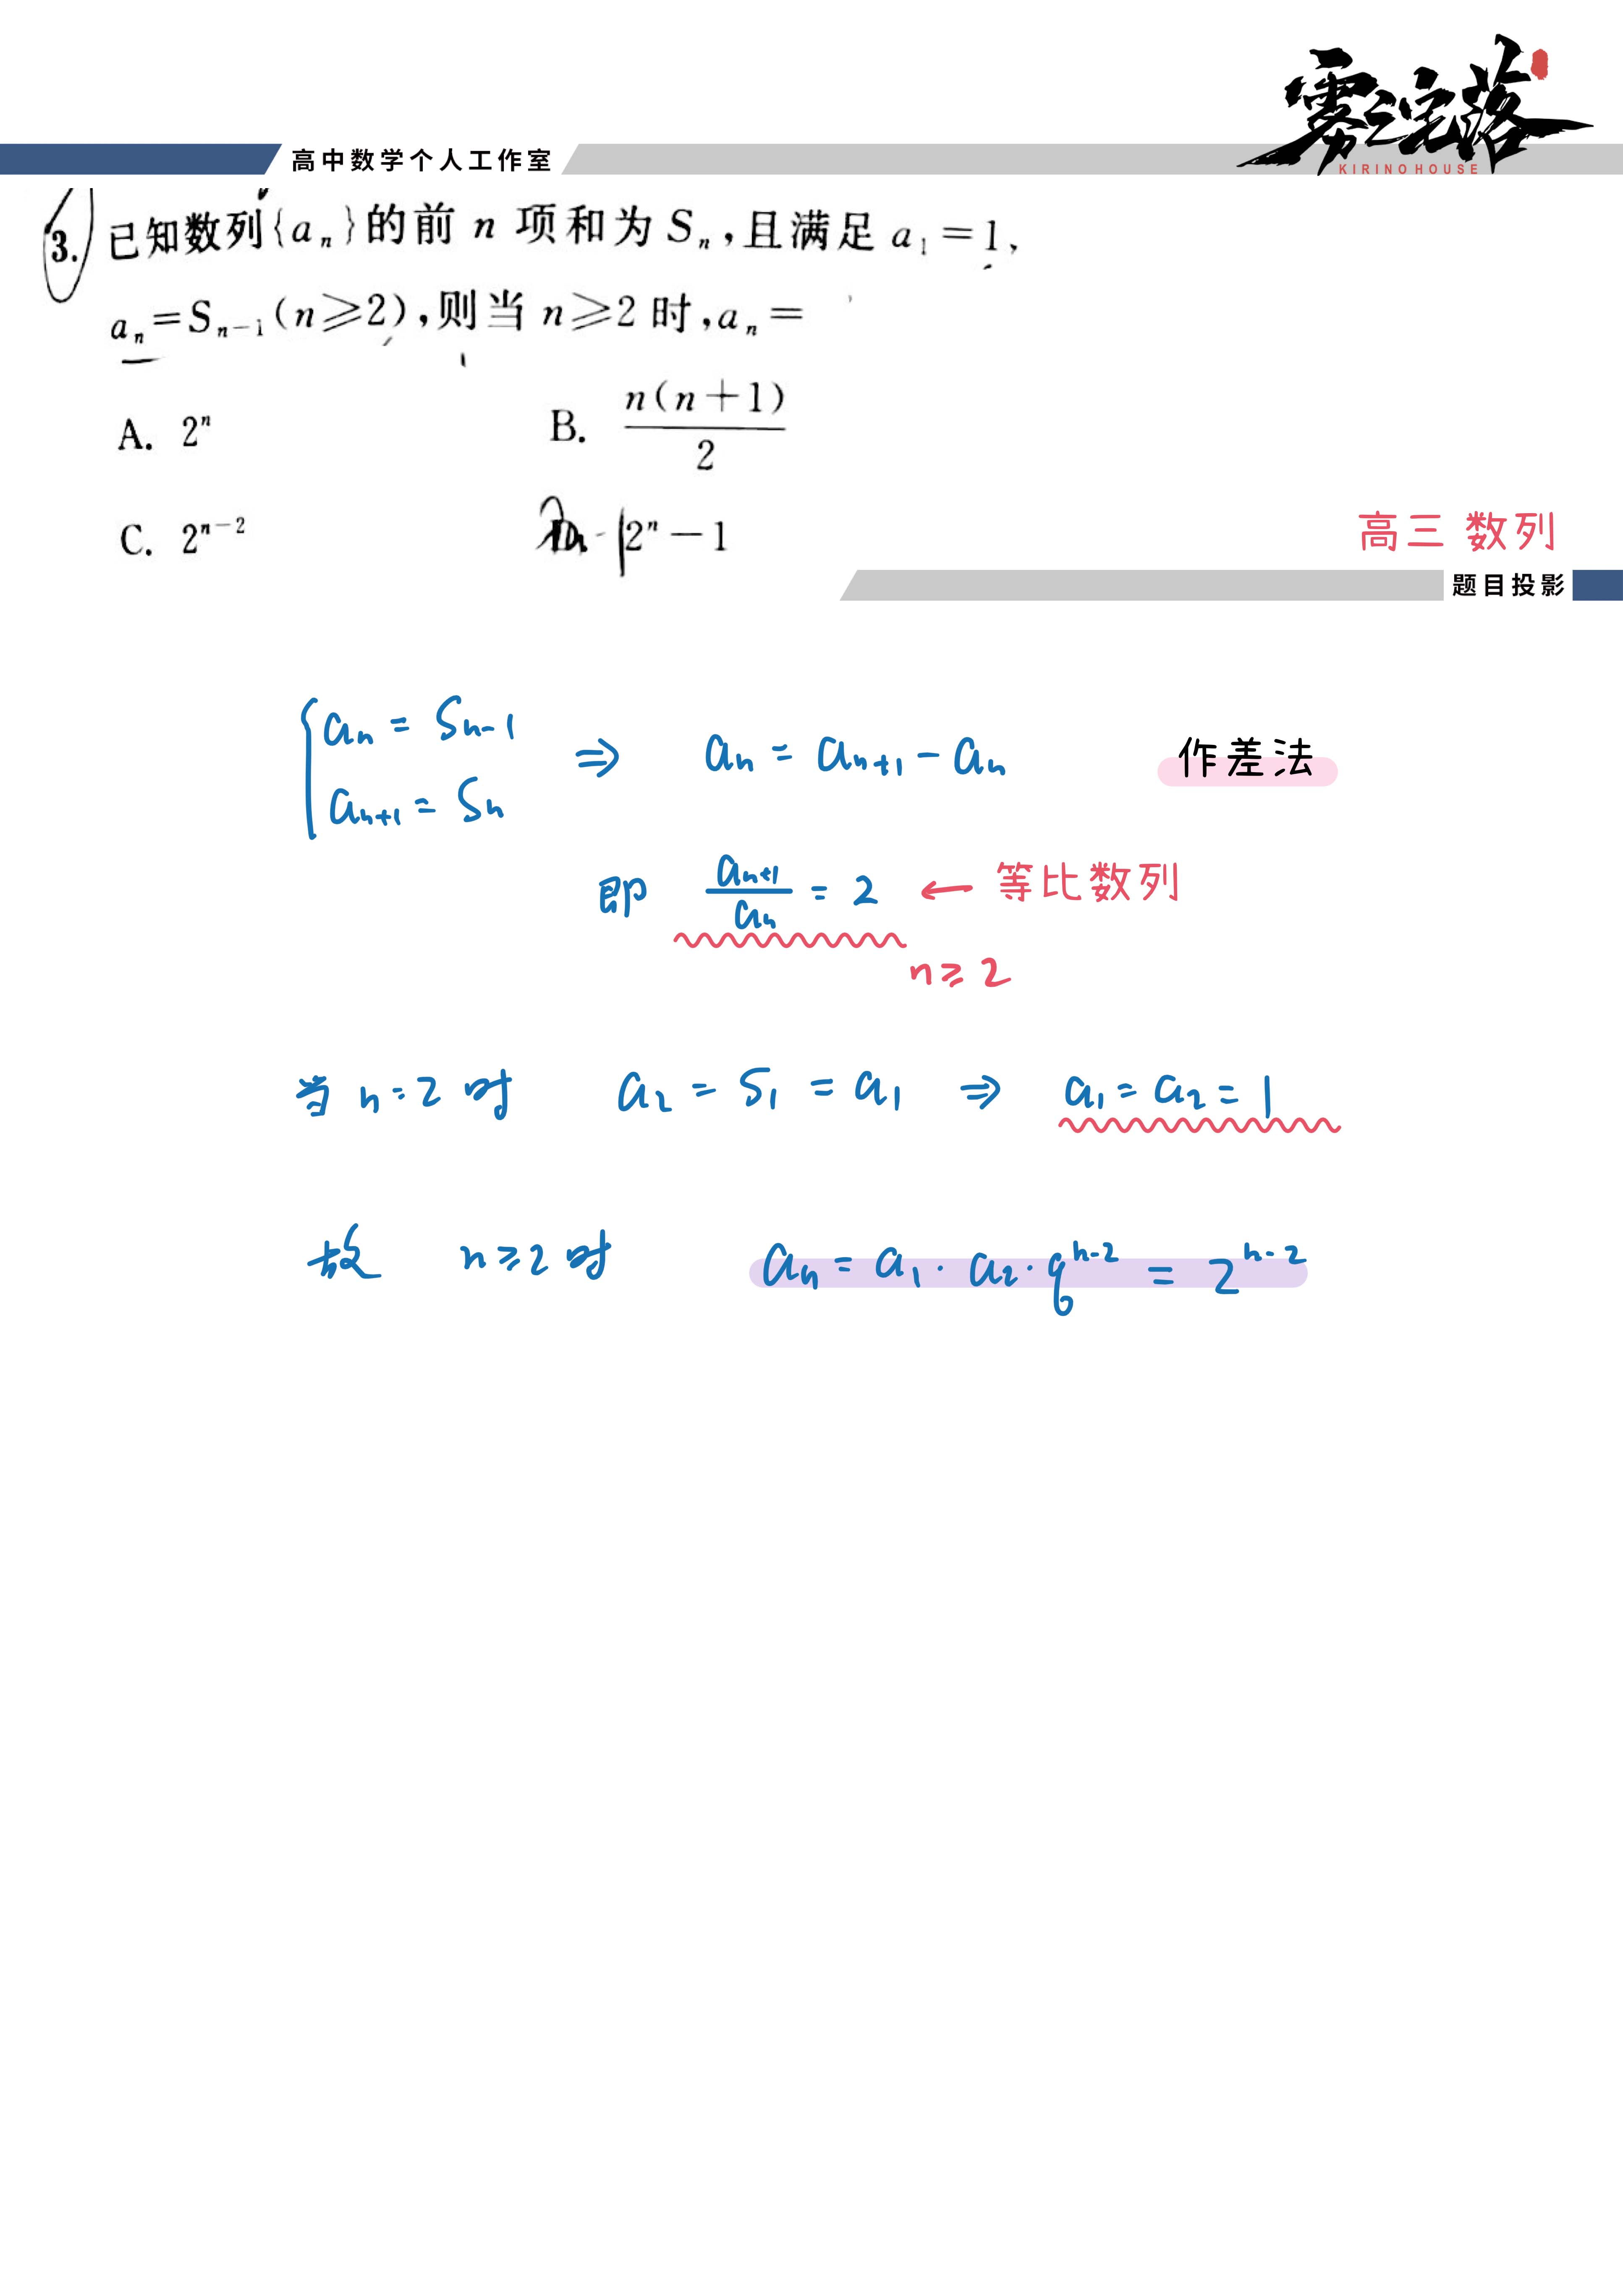 雾之宅落
KIRINO HOUSE
高中数学个人工作室
3. 已知数列{aₙ}的前 n 项和为 Sₙ,且满足 a₁=1,
aₙ=Sₙ₋₁(n≥2),则当 n≥2 时,aₙ=
A. 2ⁿ B. n(n+1)/2
C. 2ⁿ⁻² D. 2ⁿ-1
高三 数列
题目投影
{aₙ = Sₙ₋₁ ⇒ aₙ = aₙ₊₁ - aₙ 作差法
aₙ₊₁ = Sₙ
即 aₙ₊₁/aₙ = 2 ← 等比数列
n≥2
当 n=2 时 a₂ = S₁ = a₁ ⇒ a₁ = a₂ = 1
故 n≥2 时 aₙ = a₁·a₂·qⁿ⁻² = 2ⁿ⁻²